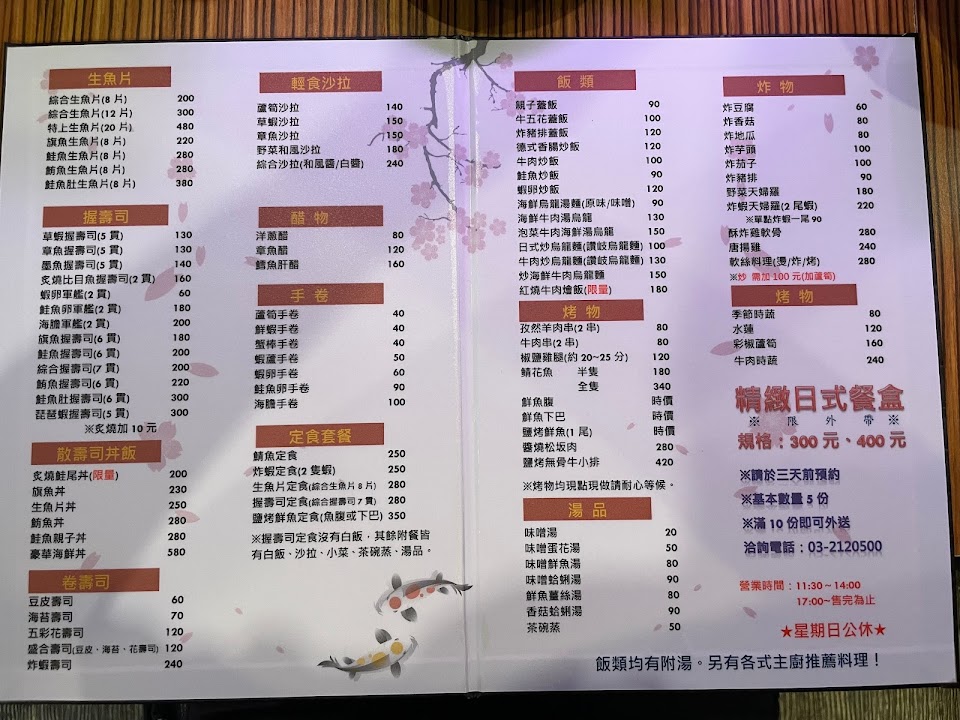 生魚片
綜合生魚片(8 片) 200
綜合生魚片(12 片) 300
特上生魚片(20 片) 480
旗魚生魚片(8 片) 220
鮭魚生魚片(8 片) 280
鮪魚生魚片(8 片) 280
鮭魚肚生魚片(8 片) 380
握壽司
草蝦握壽司(5 貫) 130
章魚握壽司(5 貫) 130
墨魚握壽司(5 貫) 140
炙燒比目魚握壽司(2 貫) 160
蝦卵軍艦(2 貫) 60
鮭魚卵軍艦(2 貫) 180
海膽軍艦(2 貫) 200
旗魚握壽司(6 貫) 180
鮭魚握壽司(6 貫) 200
綜合握壽司(7 貫) 200
鮪魚握壽司(6 貫) 220
鮭魚肚握壽司(6 貫) 300
琵琶蝦握壽司(5 貫) 300
※炙燒加 10 元
散壽司丼飯
炙燒鮭尾丼(限量) 200
旗魚丼 230
生魚片丼 250
鮪魚丼 280
鮭魚親子丼 280
豪華海鮮丼 580
卷壽司
豆皮壽司 60
海苔壽司 70
五彩花壽司 120
盛合壽司(豆皮、海苔、花壽司) 120
炸蝦壽司 240
輕食沙拉
蘆筍沙拉 140
草蝦沙拉 150
章魚沙拉 150
野菜和風沙拉 180
綜合沙拉(和風醬/白醬) 240
醋物
洋蔥醋 80
章魚醋 120
鱈魚肝醋 160
手卷
蘆筍手卷 40
鮮蝦手卷 40
蟹棒手卷 40
蝦蘆手卷 50
蝦卵手卷 60
鮭魚卵手卷 90
海膽手卷 100
定食套餐
鯖魚定食 250
炸蝦定食(2 隻蝦) 250
生魚片定食(綜合生魚片 8 片) 280
握壽司定食(綜合握壽司 7 貫) 280
鹽烤鮮魚定食(魚腹或下巴) 350
※握壽司定食沒有白飯，其餘附餐皆
有白飯、沙拉、小菜、茶碗蒸、湯品。
飯類
親子蓋飯 90
牛五花蓋飯 100
炸豬排蓋飯 120
德式香腸炒飯 120
牛肉炒飯 100
鮭魚炒飯 90
蝦卵炒飯 120
海鮮烏龍湯麵(原味/味噌) 90
海鮮牛肉湯烏龍 130
泡菜牛肉海鮮湯烏龍 150
日式炒烏龍麵(讚岐烏龍麵) 100
牛肉炒烏龍麵(讚岐烏龍麵) 130
炒海鮮牛肉烏龍麵 150
紅燒牛肉燴飯(限量) 180
烤物
孜然羊肉串(2 串) 80
牛肉串(2 串) 80
椒鹽雞腿(約 20~25 分) 120
鯖花魚 半隻 180
全隻 340
鮮魚腹 時價
鮮魚下巴 時價
鹽烤鮮魚(1 尾) 時價
醬燒松坂肉 280
鹽烤無骨牛小排 420
※烤物均現點現做請耐心等候。
湯品
味噌湯 20
味噌蛋花湯 50
味噌鮮魚湯 80
味噌蛤蜊湯 90
鮮魚薑絲湯 80
香菇蛤蜊湯 90
茶碗蒸 50
炸物
炸豆腐 60
炸香菇 80
炸地瓜 80
炸芋頭 100
炸茄子 100
炸豬排 90
野菜天婦羅 180
炸蝦天婦羅(2 尾蝦) 220
※單點炸蝦一尾 90
酥炸雞軟骨 280
唐揚雞 240
軟絲料理(燙/炸/烤) 280
※炒 需加 100 元(加蘆筍)
烤物
季節時蔬 80
水蓮 120
彩椒蘆筍 160
牛肉時蔬 240
精緻日式餐盒
※限外帶※
規格：300 元、400 元
※請於三天前預約
※基本數量 5 份
※滿 10 份即可外送
洽詢電話：03-2120500
營業時間：11:30~14:00
17:00~售完為止
★星期日公休★
飯類均有附湯。另有各式主廚推薦料理！